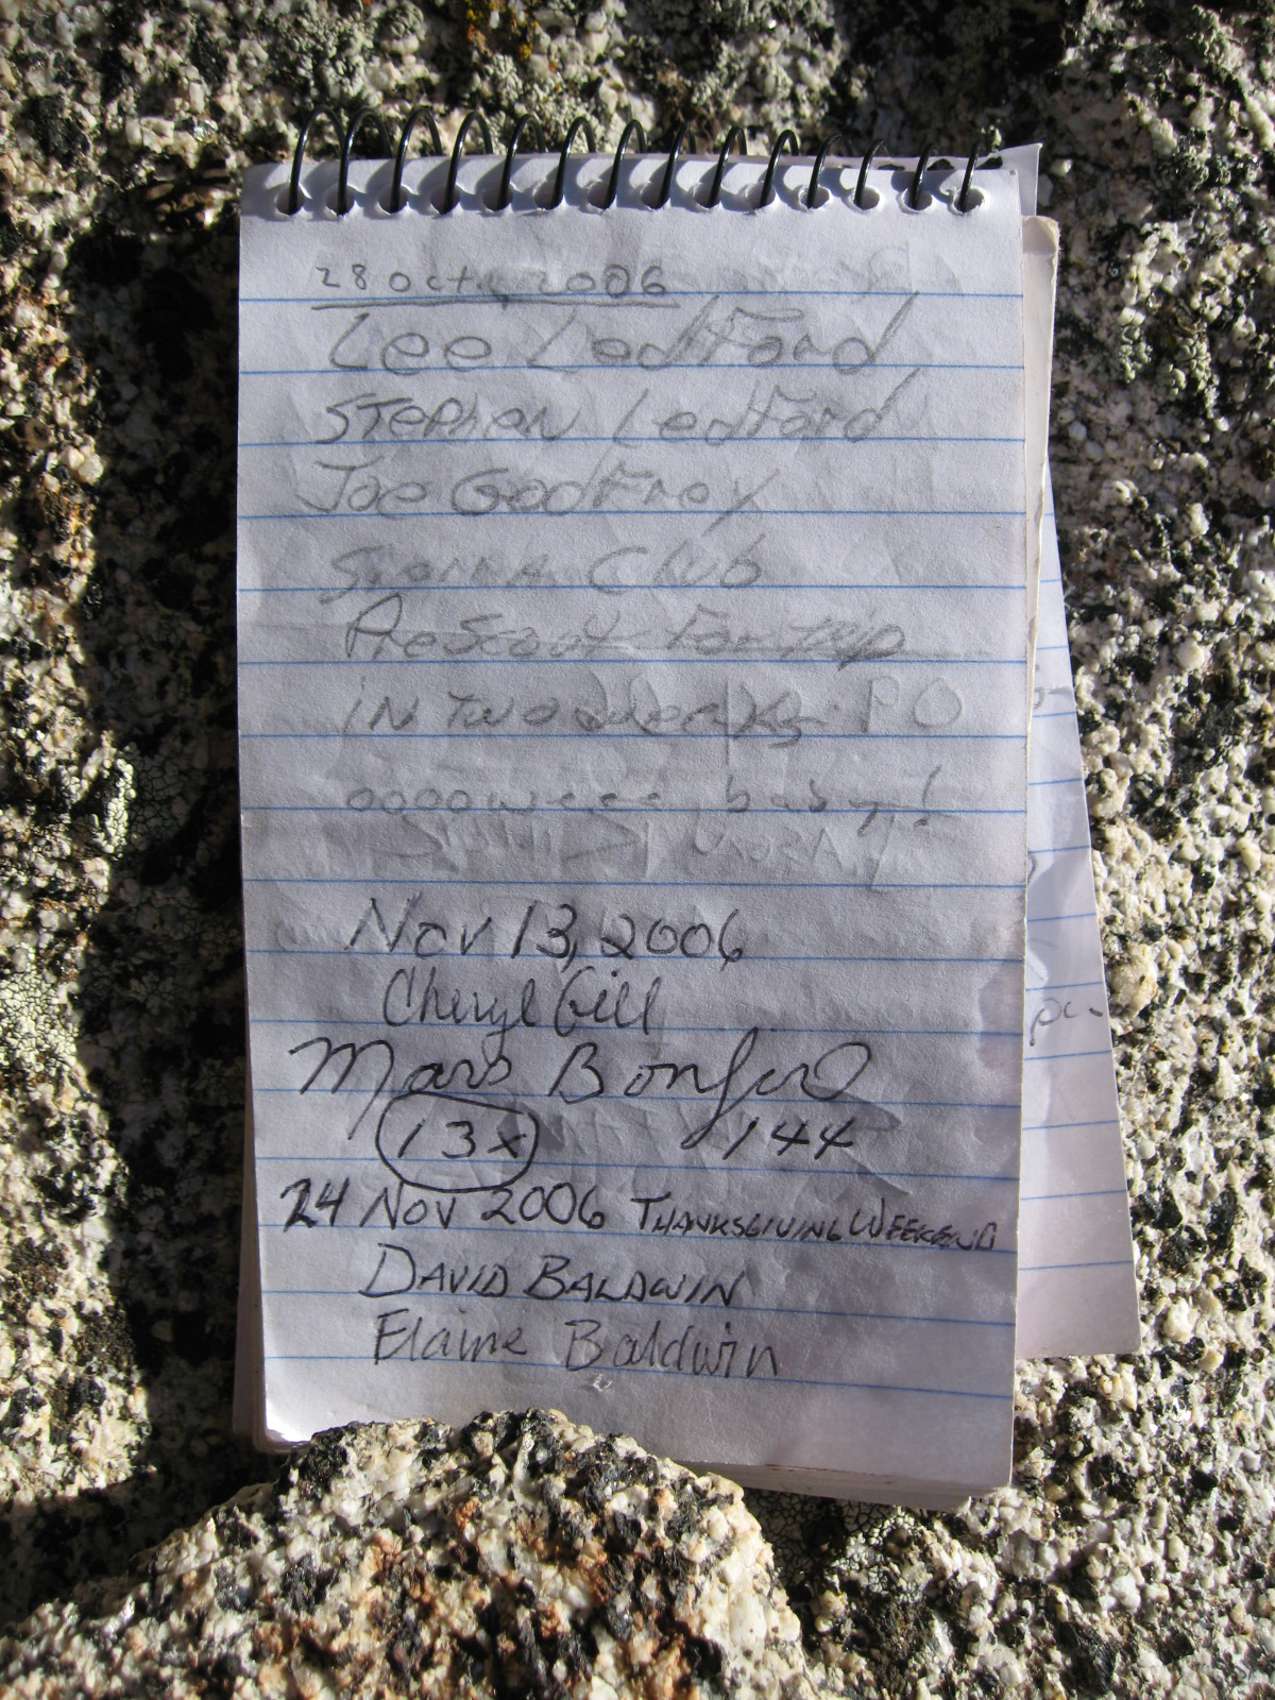 28 Oct, 2006
Lee Ledford
Stephen Ledford
Joe Godfrey
Sierra Club
PreScout For trip
in two weeks. PO
ooooweee baby!
Nov 13, 2006
Cheryl Gill
Mars Bonfire
13x 144
24 Nov 2006 THANKSGIVING WEEKEND
DAVID BALDWIN
Elaine Baldwin